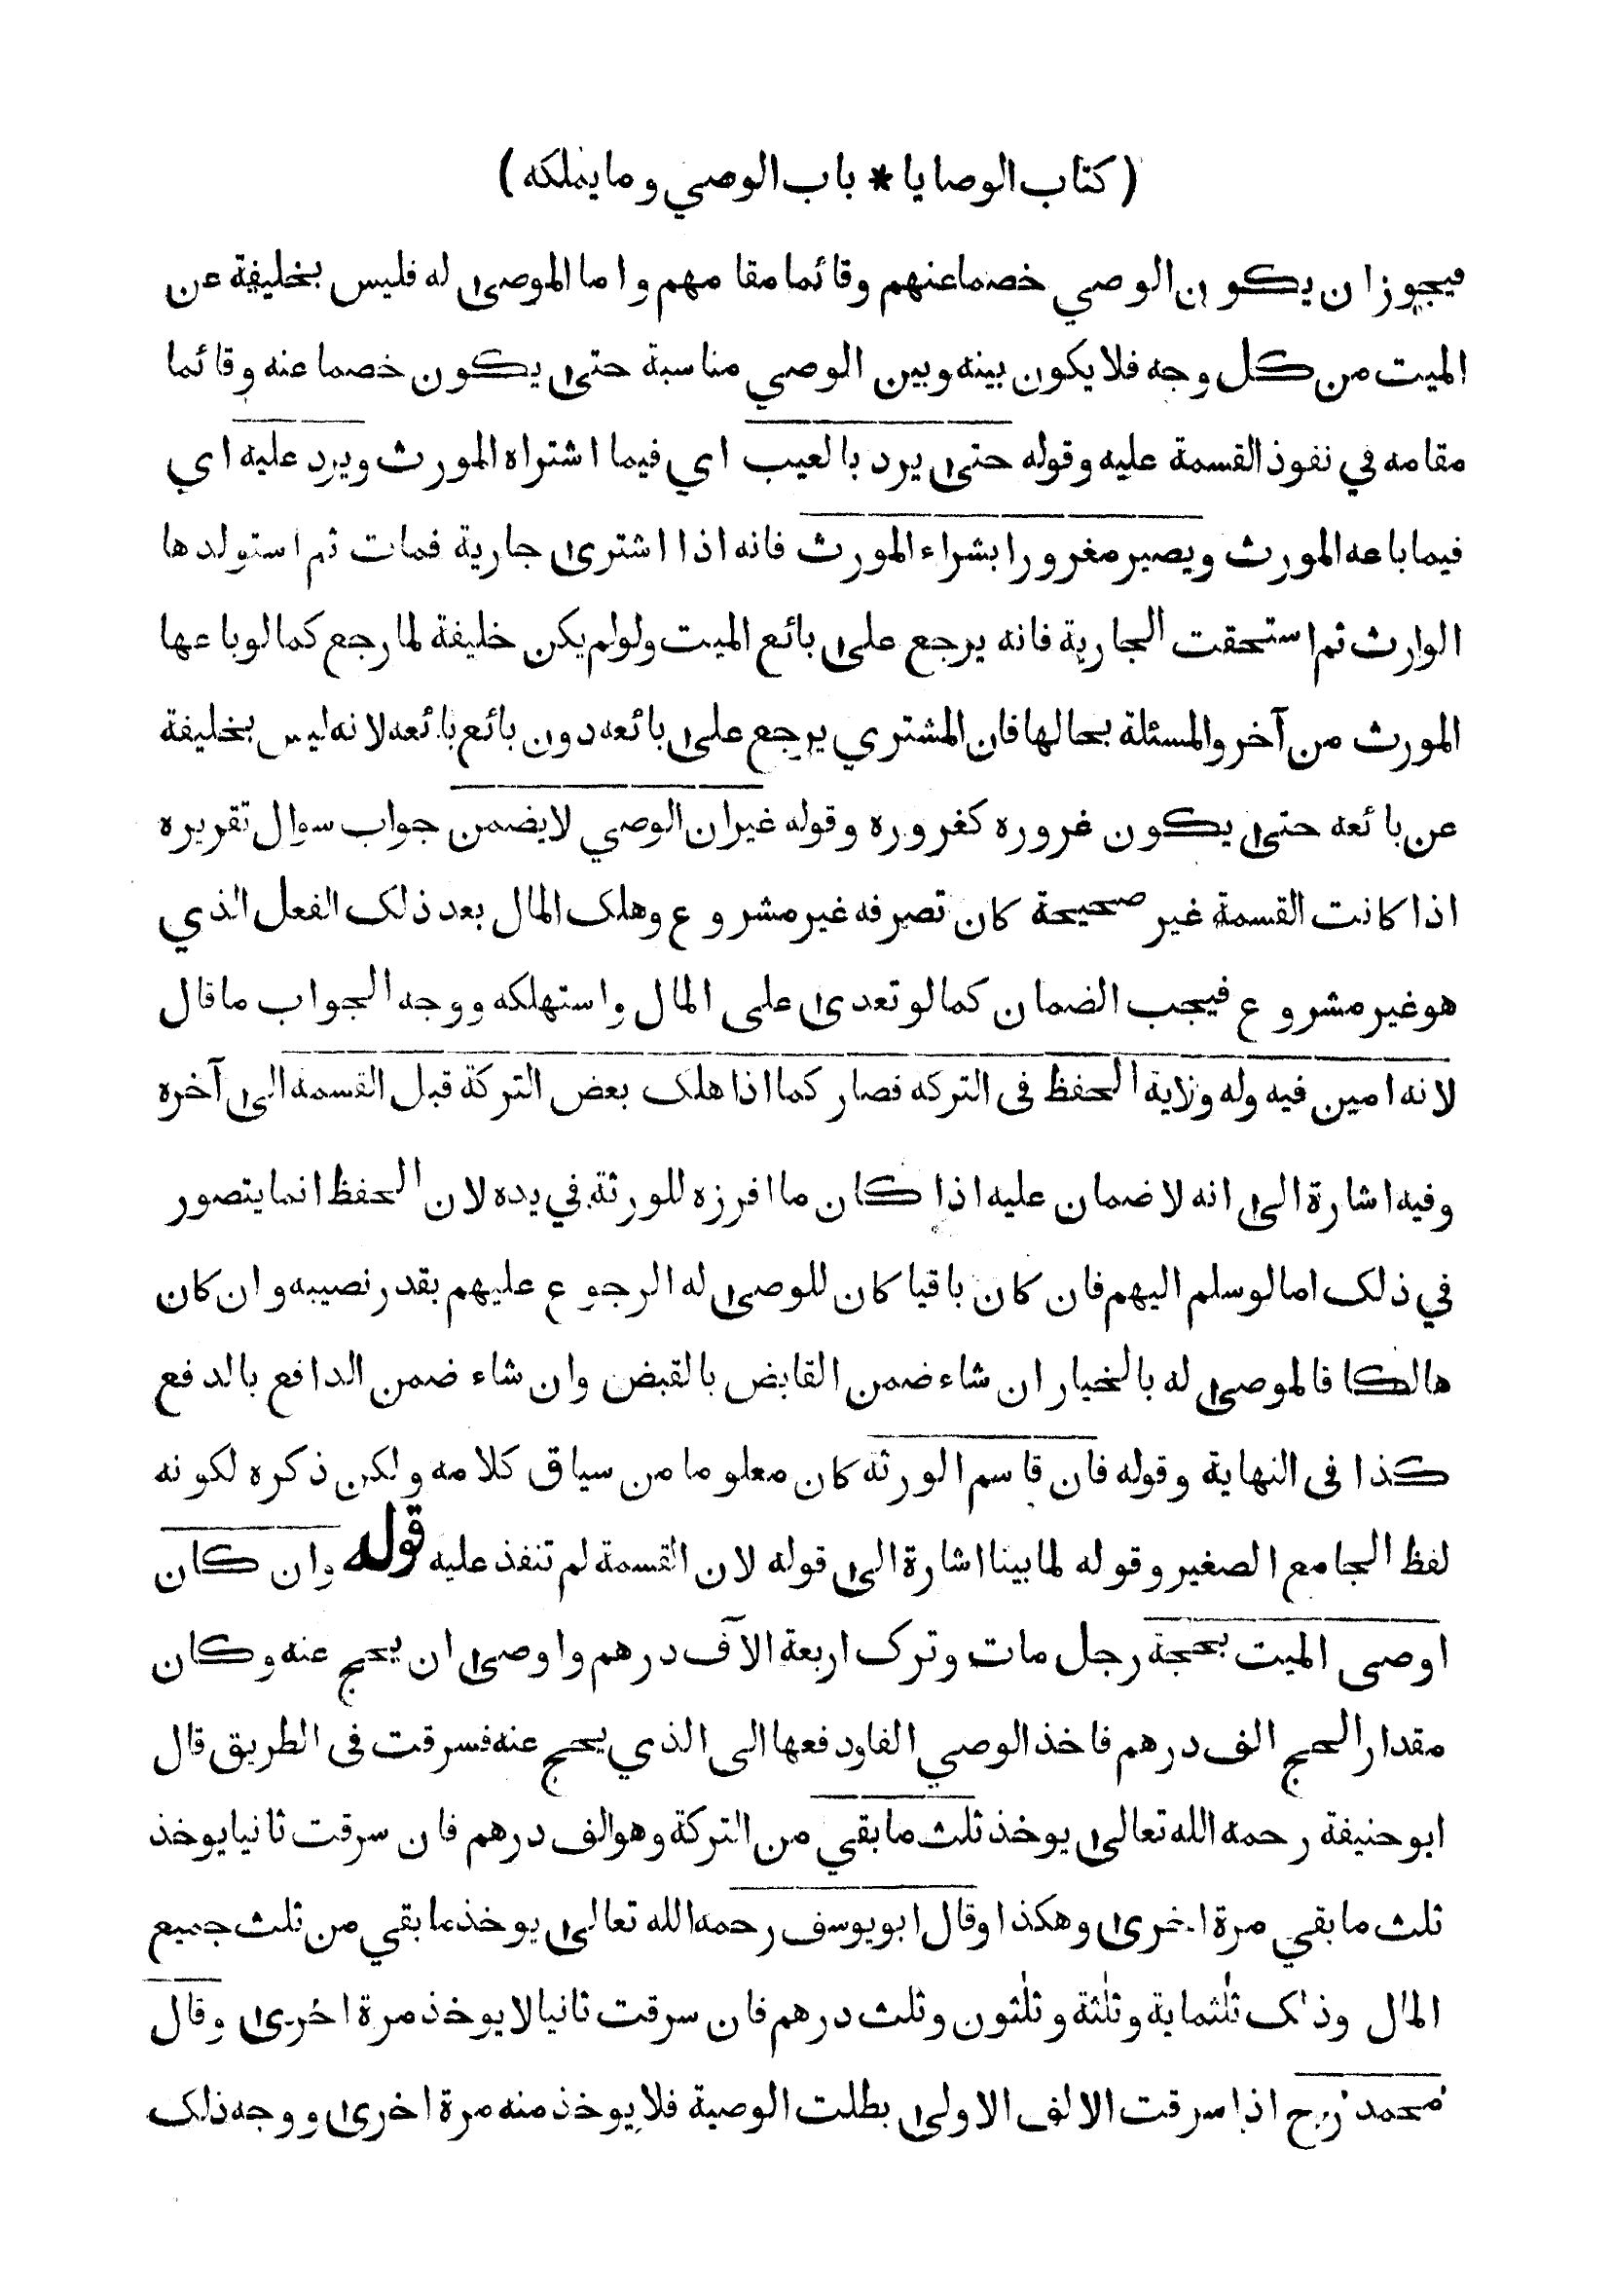 ( كتاب الوصايا * باب الوصي وما يملكه )
فيجوز ان يكون الوصي خصما عنهم وقائما مقامهم واما الموصى له فليس بخليفة عن
الميت من كل وجه فلا يكون بينه وبين الوصي مناسبة حتى يكون خصما عنه وقائما
مقامه في نفوذ القسمة عليه وقوله حتى يرد بالعيب اي فيما اشتراه المورث ويرد عليه اي
فيما باعه المورث ويصير مغرورا بشراء المورث فانه اذا اشترى جارية فمات ثم استولدها
الوارث ثم استحقت الجارية فانه يرجع على بائع الميت ولولم يكن خليفة لما رجع كما لو باعها
المورث من آخر والمسئلة بحالها فان المشتري يرجع على بائعه دون بائع بائعه لانه ليس بخليفة
عن بائعه حتى يكون غروره كغروره وقوله غير ان الوصي لا يضمن جواب سوال تقريره
اذا كانت القسمة غير صحيحة كان تصرفه غير مشروع وهلك المال بعد ذلك الفعل الذي
هو غير مشروع فيجب الضمان كما لو تعدى على المال واستهلكه ووجه الجواب ما قال
لانه امين فيه وله ولاية الحفظ فى التركه فصار كما اذا هلك بعض التركة قبل القسمه الى آخره
وفيه اشارة الى انه لا ضمان عليه اذا كان ما افرزه للورثة في يده لان الحفظ انما يتصور
في ذلك اما لو سلم اليهم فان كان باقيا كان للوصى له الرجوع عليهم بقدر نصيبه وان كان
هالكا فالموصى له بالخيار ان شاء ضمن القابض بالقبض وان شاء ضمن الدافع بالدفع
كذا فى النهاية وقوله فان قاسم الورثه كان معلوما من سياق كلامه ولكن ذكره لكونه
لفظ الجامع الصغير وقوله لما بينا اشارة الى قوله لان القسمة لم تنفذ عليه قوله وان كان
اوصى الميت بحجة رجل مات وترك اربعة الآف درهم واوصى ان يحج عنه وكان
مقدار الحج الف درهم فاخذ الوصي الفا ودفعها الى الذي يحج عنه فسرقت فى الطريق قال
ابو حنيفة رحمه الله تعالى يوخذ ثلث ما بقي من التركة وهو الف درهم فان سرقت ثانيا يوخذ
ثلث ما بقي مرة اخرى وهكذا وقال ابو يوسف رحمه الله تعالى يوخذ ما بقي من ثلث جميع
المال وذلك ثلثماية وثلثة وثلثون وثلث درهم فان سرقت ثانيا لا يوخذ مرة اخرى وقال
محمد رح اذا سرقت الالف الاولى بطلت الوصية فلا يوخذ منه مرة اخرى ووجه ذلك